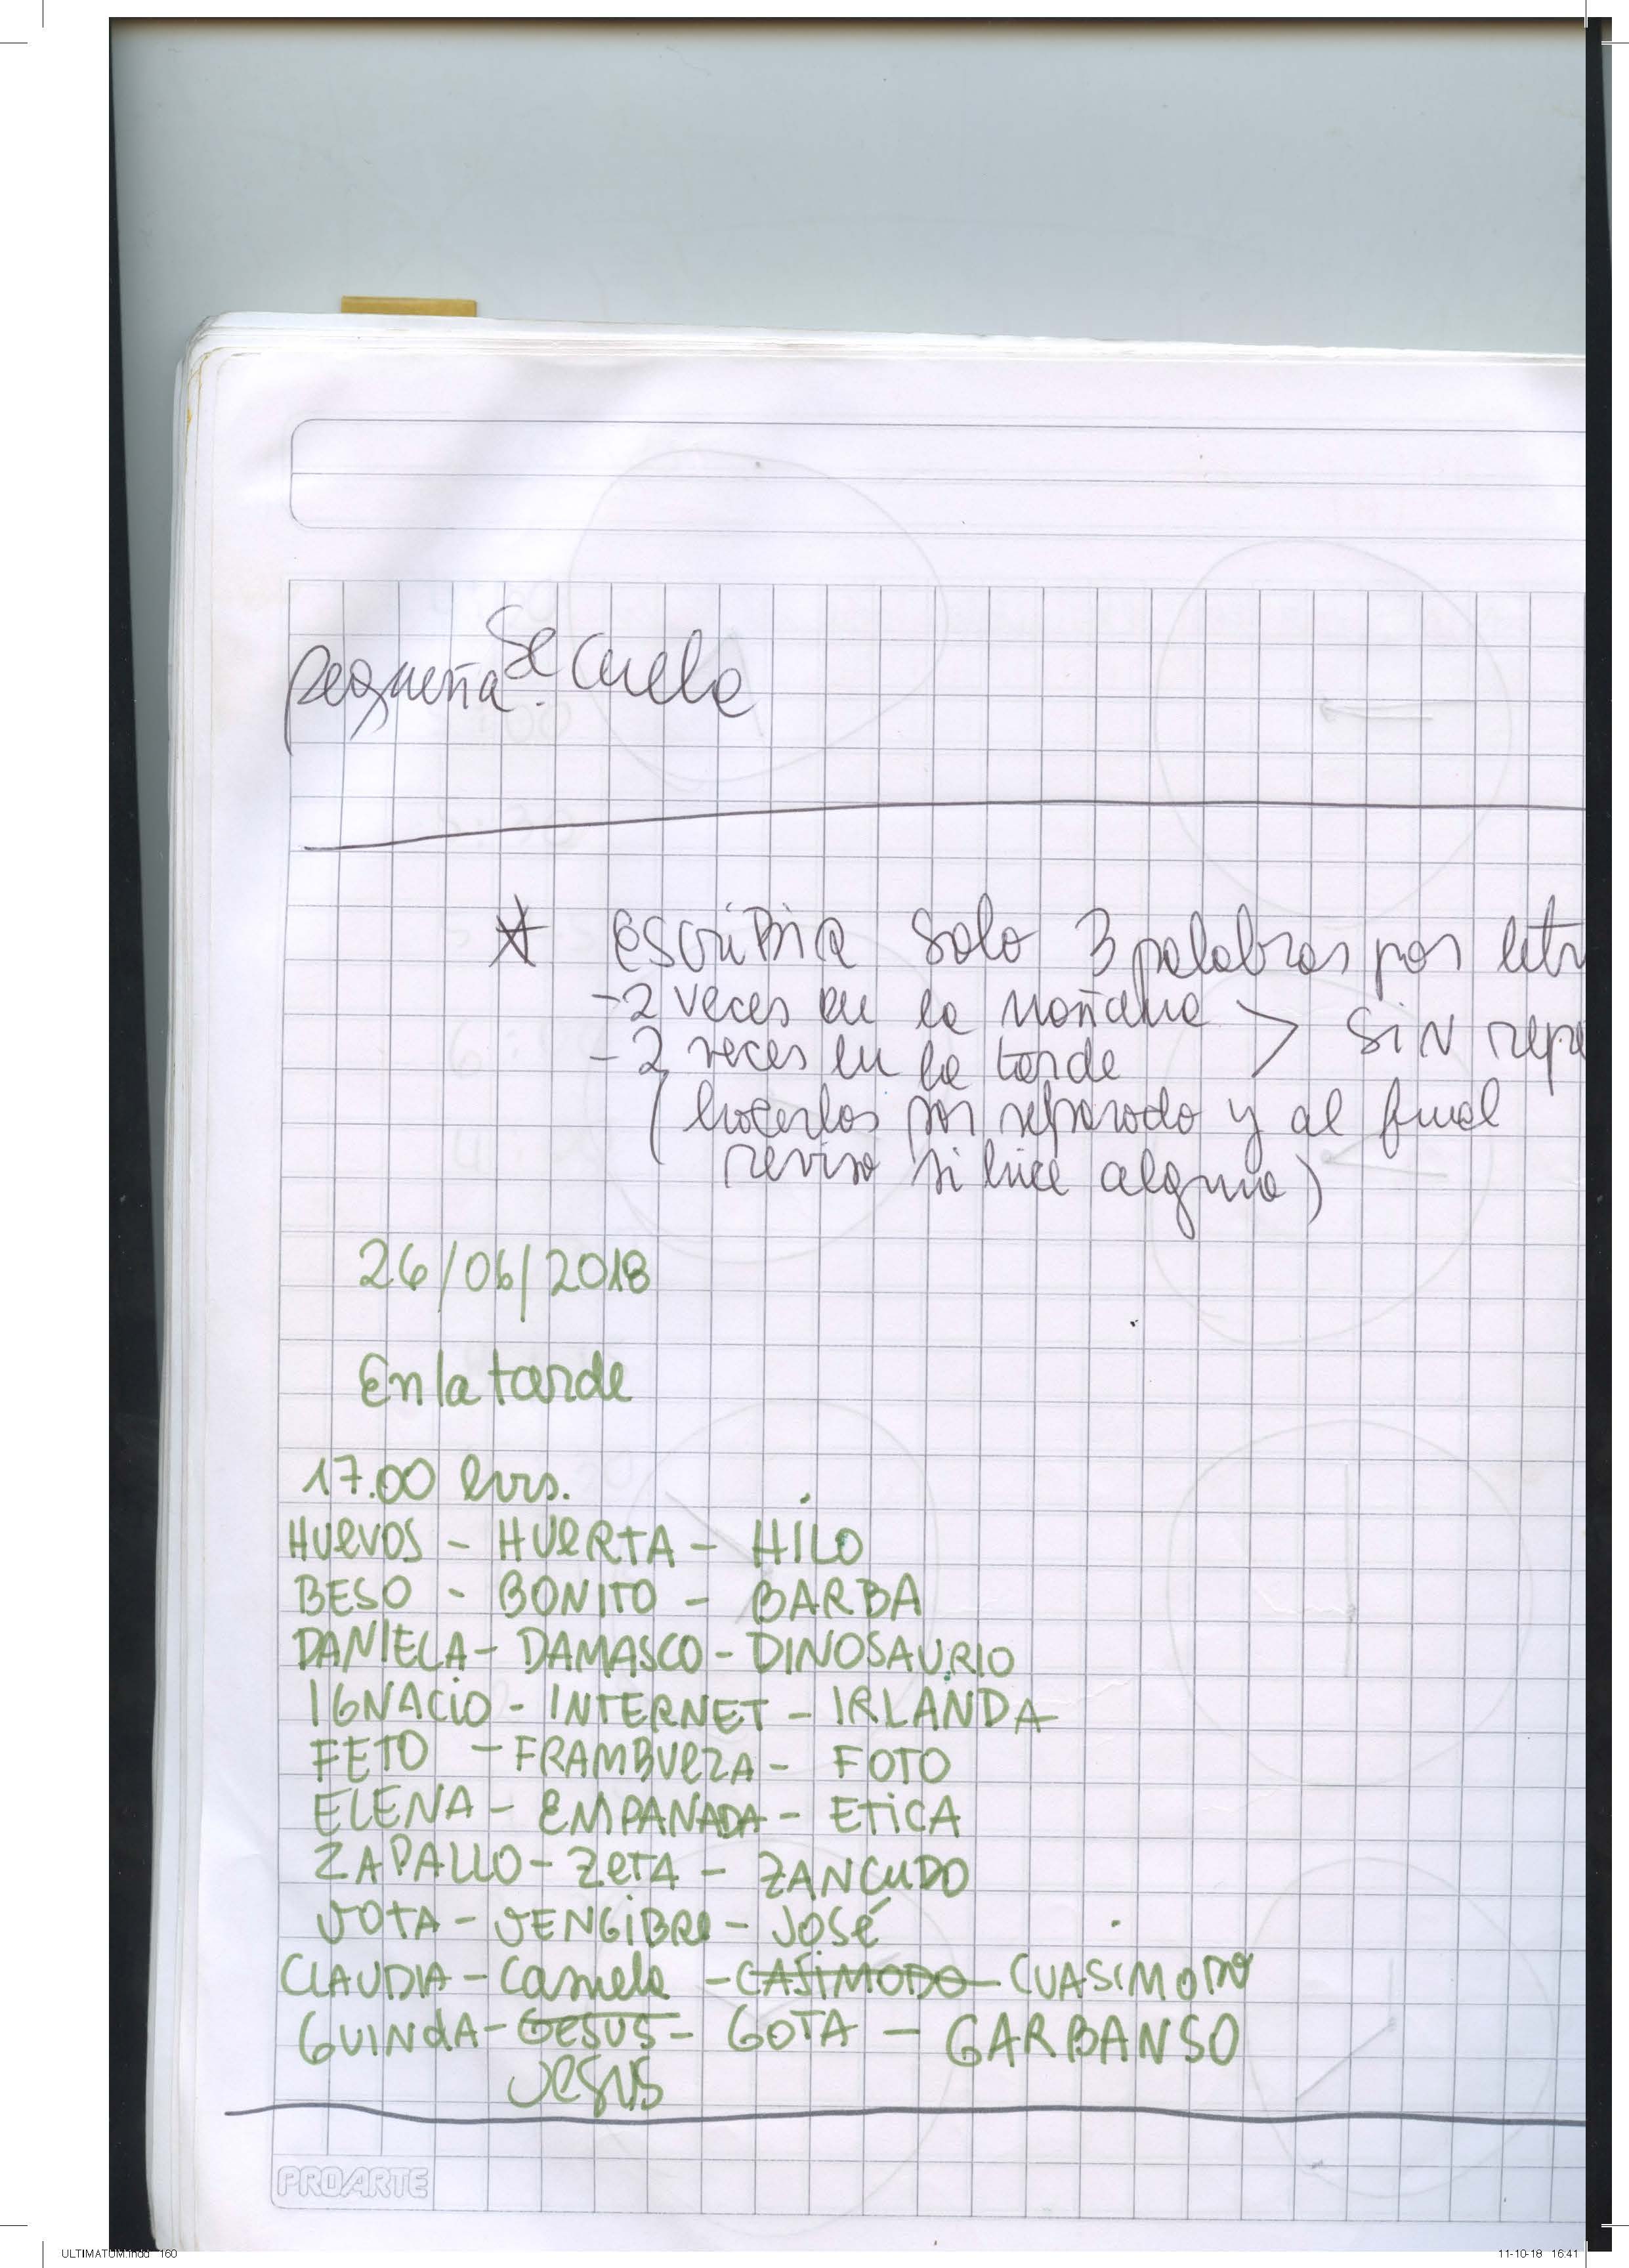 pequeña Secuela
* escribir solo 3 palabras por letr
-2 veces en la mañana > SiN repe
-2 veces en la tarde
(hacerlos por separado y al final
reviso si hice alguno)
26/06/2018
En la tarde
17.00 hrs.
HUEVOS - HUERTA - HILO
BESO - BONITO - BARBA
DANIELA - DAMASCO - DINOSAURIO
IGNACIO - INTERNET - IRLANDA
FETO - FRAMBUEZA - FOTO
ELENA - EMPANADA - ETICA
ZAPALLO - ZETA - ZANCUDO
JOTA - JENGIBRE - JOSÉ
CLAUDIA - Camela - CASIMODO CUASIMODO
GUINDA - GESUS - GOTA - GARBANSO
JESUS
PROARTE
ULTIMATUM.indd 160 11-10-18 16:41